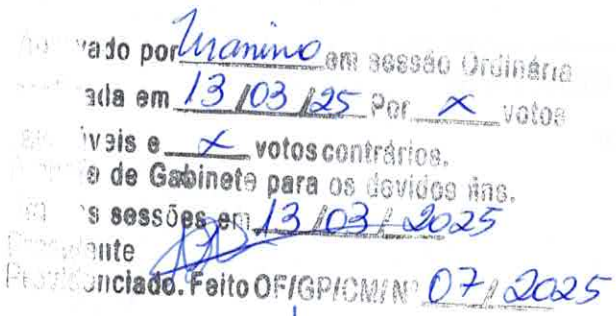 vado por Unanime em sessão Ordinária
ada em 13/03/25 Por x votos
veis e x votos contrários.
de Gabinete para os devidos fins.
s sessões em 13/03/2025
Presidente
Providenciado. Feito OF/GP/CM/Nº 07/2025